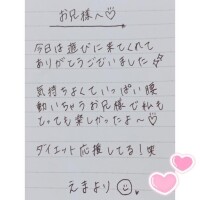 お兄様へ♡
今日は遊びに来てくれて
ありがとうございました
気持ちよくていっぱい腰
動いちゃうお兄様で私も
とっても楽しかったよ〜♡
ダイエット応援してる!笑
えまより